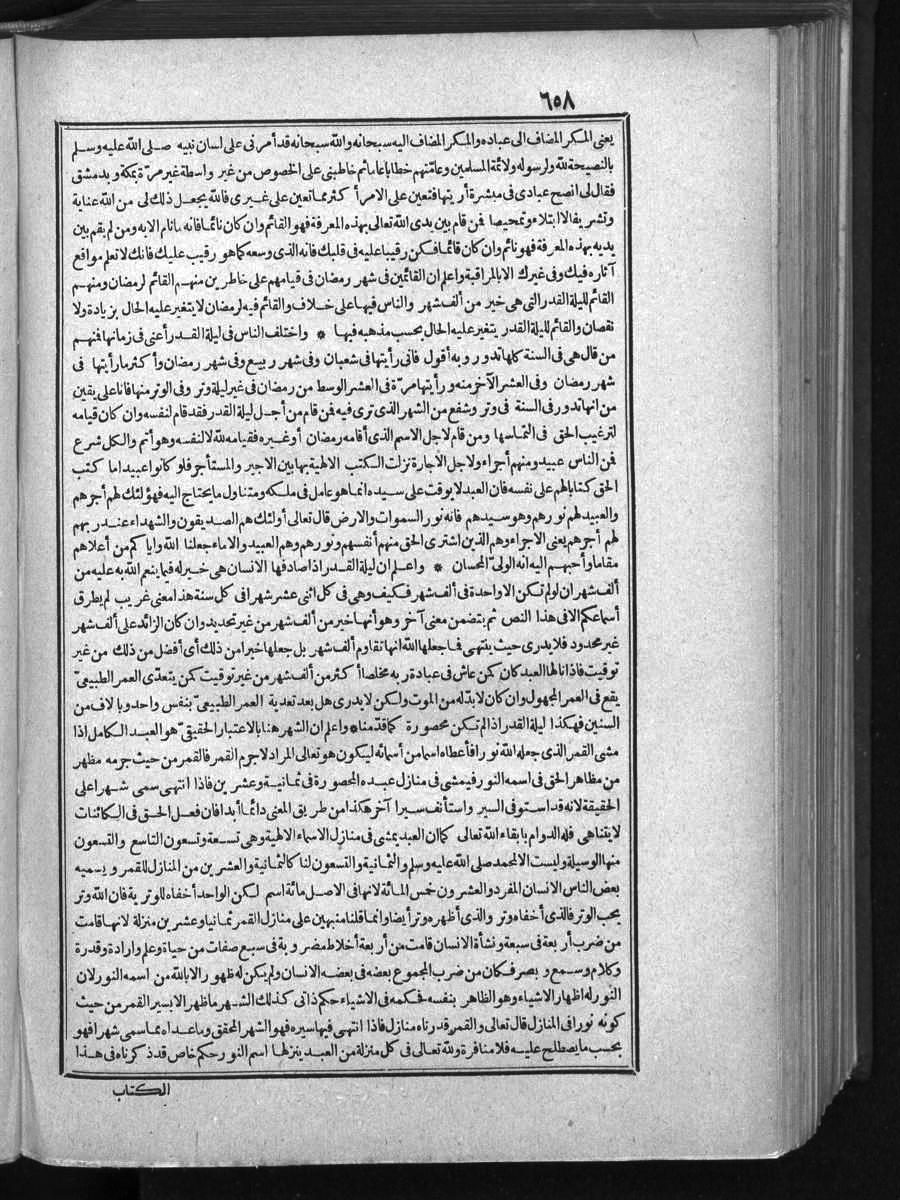 ٦٥٨
يعنى المكر المضاف الى عباده والمكر المضاف اليه سبحانه والله سبحانه قد أمرنى على لسان نبيه صلى الله عليه وسلم
بالنصيحة لله ولرسوله ولائمة المسلمين وعامّتهم خطابا عاما ثم خاطبنى على الخصوص من غير واسطة غير مرّة بمكة وبدمشق
فقال لى انصح عبادى فى مبشرة أريتها فتعين على الامر أكثر مما تعين على غيرى فالله يجعل ذلك لى من الله عناية
وتشريفا لا ابتلاء وتمحيصا فمن قام بين يدى الله تعالى بهذه المعرفة فهو القائم وان كان نائما فانه ما نام الا به ومن لم يقم بين
يديه بهذه المعرفة فهو نائم وان كان قائما فكن رقيبا عليه فى قلبك فانه الذى وسعه كما هو رقيب عليك فانك لا تعلم مواقع
آثاره فيك وفى غيرك الا بالمراقبة واعلم ان القائمين فى شهر رمضان فى قيامهم على خاطرين منهم القائم لرمضان ومنهم
القائم لليلة القدر التى هى خير من ألف شهر والناس فيها على خلاف والقائم فيه لرمضان لا يتغير عليه الحال بزيادة ولا
نقصان والقائم لليلة القدر يتغير عليه الحال بحسب مذهبه فيها * واختلف الناس فى ليلة القدر أعنى فى زمانها فمنهم
من قال هى فى السنة كلها تدور وبه أقول فانى رأيتها فى شعبان وفى شهر ربيع وفى شهر رمضان وأكثر ما رأيتها فى
شهر رمضان وفى العشر الآخر منه ورأيتها مرّة فى العشر الوسط من رمضان فى غير ليلة وتر وفى الوتر منها فانا على يقين
من انها تدور فى السنة فى وتر وشفع من الشهر الذى ترى فيه فمن قام من أجل ليلة القدر فقد قام لنفسه وان كان قيامه
لترغيب الحق فى التماسها ومن قام لاجل الاسم الذى أقامه رمضان أو غيره فقيامه لله لا لنفسه وهو أتم والكل شرع
فمن الناس عبيد ومنهم أجراء ولاجل الاجارة نزلت الكتب الالهية بها بين الاجير والمستأجر فلو كانوا عبيدا ما كتب
الحق كتابا لهم على نفسه فان العبد لا يوقت على سيده انما هو عامل فى ملكه ومتناول ما يحتاج اليه فهؤلئك لهم أجرهم
والعبيد لهم نورهم وهو سيدهم فانه نور السموات والارض قال تعالى أولئك هم الصديقون والشهداء عند ربهم
لهم أجرهم يعنى الاجراء وهم الذين اشترى الحق منهم أنفسهم ونورهم وهم العبيد والاماء جعلنا الله واياكم من أعلاهم
مقاما وأحبهم اليه انه الولىّ المحسان * واعلم ان ليلة القدر اذا صادفها الانسان هى خير له فيما ينعم الله به عليه من
ألف شهر ان لو لم تكن الا واحدة فى ألف شهر فكيف وهى فى كل اثنى عشر شهرا فى كل سنة هذا معنى غريب لم يطرق
أسماعكم الا فى هذا النص ثم يتضمن معنى آخر وهو أنها خير من ألف شهر من غير تحديد وان كان الزائد على ألف شهر
غير محدود فلا يدرى حيث ينتهى فما جعلها الله انها تقاوم ألف شهر بل جعلها خيرا من ذلك أى أفضل من ذلك من غير
توقيت فاذا نالها العبد كان كمن عاش فى عبادة ربه مخلصا أكثر من ألف شهر من غير توقيت كمن يتعدّى العمر الطبيعىّ
يقع فى العمر المجهول وان كان لا بدّ له من الموت ولكن لا يدرى هل بعد تعدية العمر الطبيعىّ بنفس واحد وبالاف من
السنين فهكذا ليلة القدر اذا لم تكن محصورة كما قدّمنا * واعلم ان الشهر هنا بالاعتبار الحقيقىّ هو العبد الكامل اذا
مشى القمر الذى جعله الله نورا فأعطاه اسما من أسمائه ليكون هو تعالى المراد لا جرم القمر فالقمر من حيث جرمه مظهر
من مظاهر الحق فى اسمه النور فيمشى فى منازل عبده المحصورة فى ثمانية وعشرين فاذا انتهى سمى شهرا على
الحقيقة لانه قد استوفى السير واستأنف سيرا آخر هكذا من طريق المعنى دائما أبدا فان فعل الحق فى الكائنات
لا يتناهى فله الدوام بابقاء الله تعالى كما ان العبد يمشى فى منازل الاسماء الالهية وهى تسعة وتسعون التاسع والتسعون
منها الوسيلة وليست الا لمحمد صلى الله عليه وسلم والثمانية والتسعون لنا كالثمانية والعشرين من المنازل للقمر ويسميه
بعض الناس الانسان المفرد والعشرون خمس المائة لانها فى الاصل مائة اسم لكن الواحد أخفاه للوترية فان الله وتر
يحب الوتر فالذى أخفاه وتر والذى أظهره وتر أيضا وانما قلنا منبهين على منازل القمر ثمانيا وعشرين منزلة لانها قامت
من ضرب أربعة فى سبعة ونشأة الانسان قامت من أربعة أخلاط مضروبة فى سبع صفات من حياة وعلم وارادة وقدرة
وكلام وسمع وبصر فكان من ضرب المجموع بعضه فى بعضه الانسان ولم يكن له ظهور الا بالله من اسمه النور لان
النور له اظهار الاشياء وهو الظاهر بنفسه فحكمه فى الاشياء حكم ذاتى كذلك الشهر ما ظهر الا بسير القمر من حيث
كونه نورا فى المنازل قال تعالى والقمر قدرناه منازل فاذا انتهى فيها سيره فهو الشهر المحقق وما عداه مما سمى شهرا فهو
بحسب ما يصطلح عليه فلا منافرة ولله تعالى فى كل منزلة من العبد ينزلها اسم النور حكم خاص قد ذكرناه فى هذا
الكتاب